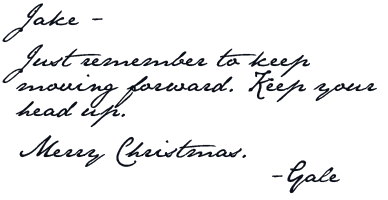 Jake -
Just remember to keep
moving forward. Keep your
head up.
Merry Christmas.
-Gale